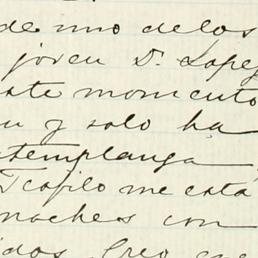 de uno de los
joven D. Lopez
este momento
y solo ha
templanza
Teofilo me está
noches con
Creo que